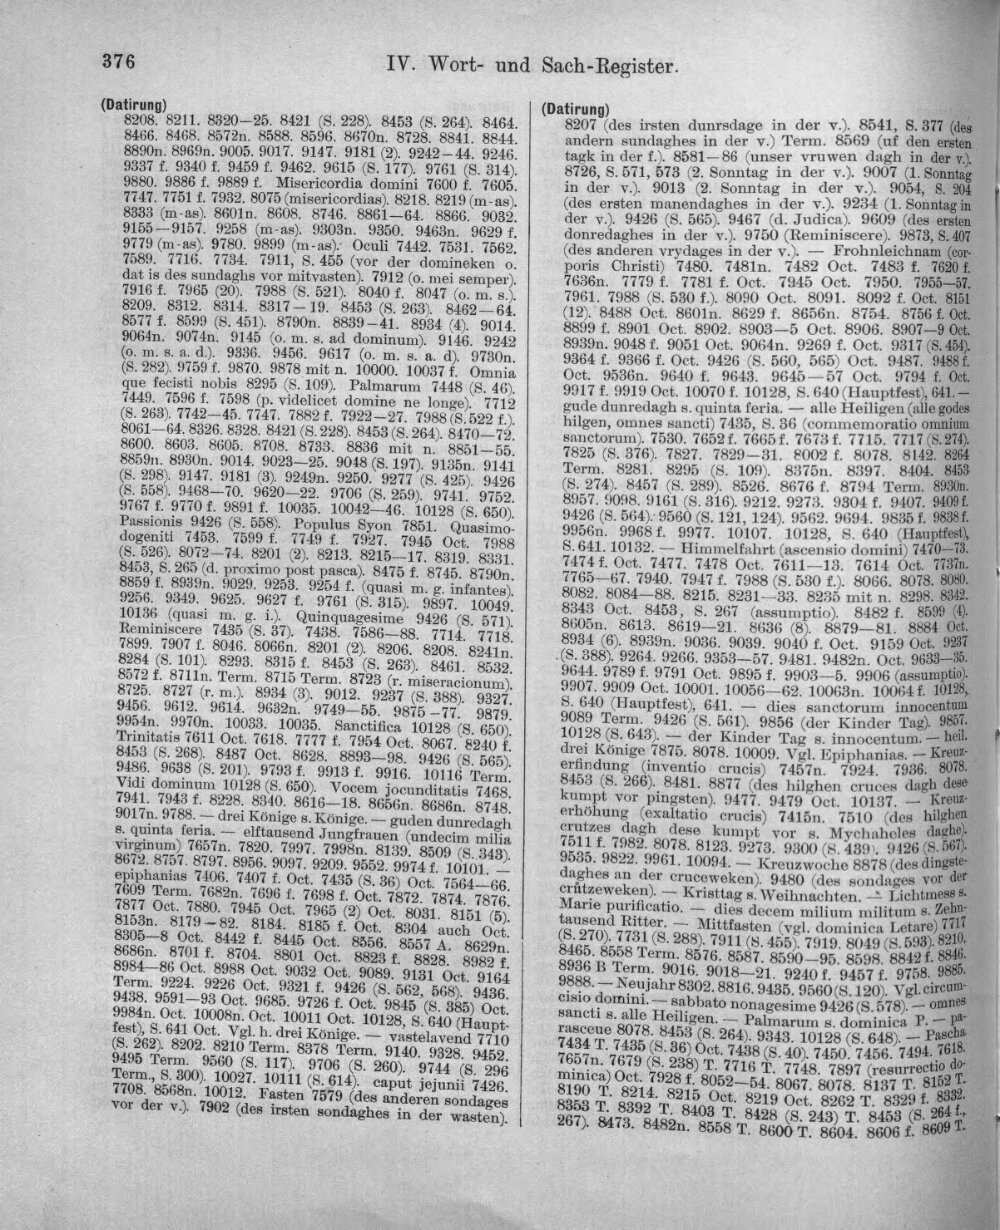 376
IV. Wort- und Sach-Register.
(Datirung)
8208. 8211. 8320—25. 8421 (S. 228). 8453 (S. 264). 8464.
8466. 8468. 8572n. 8588. 8596. 8670n. 8728. 8841. 8844.
8890n. 8969n. 9005. 9017. 9147. 9181 (2). 9242—44. 9246.
9337 f. 9340 f. 9459 f. 9462. 9615 (S. 177). 9761 (S. 314).
9880. 9886 f. 9889 f. Misericordia domini 7600 f. 7605.
7747. 7751 f. 7932. 8075 (misericordias). 8218. 8219 (m-as).
8333 (m-as). 8601n. 8608. 8746. 8861—64. 8866. 9032.
9155—9157. 9258 (m-as). 9303n. 9350. 9463n. 9629 f.
9779 (m-as). 9780. 9899 (m-as). Oculi 7442. 7531. 7562.
7589. 7716. 7734. 7911, S. 455 (vor der domineken o.
dat is des sundaghs vor mitvasten). 7912 (o. mei semper).
7916 f. 7965 (20). 7988 (S. 521). 8040 f. 8047 (o. m. s.).
8209. 8312. 8314. 8317—19. 8453 (S. 263). 8462—64.
8577 f. 8599 (S. 451). 8790n. 8839—41. 8934 (4). 9014.
9064n. 9074n. 9145 (o. m. s. ad dominum). 9146. 9242
(o. m. s. a. d.). 9336. 9456. 9617 (o. m. s. a. d). 9730n.
(S. 282). 9759 f. 9870. 9878 mit n. 10000. 10037 f. Omnia
que fecisti nobis 8295 (S. 109). Palmarum 7448 (S. 46).
7449. 7596 f. 7598 (p. videlicet domine ne longe). 7712
(S. 263). 7742—45. 7747. 7882 f. 7922—27. 7988 (S. 522 f.).
8061—64. 8326. 8328. 8421 (S. 228). 8453 (S. 264). 8470—72.
8600. 8603. 8605. 8708. 8733. 8836 mit n. 8851—55.
8859n. 8930n. 9014. 9023—25. 9048 (S. 197). 9135n. 9141
(S. 298). 9147. 9181 (3). 9249n. 9250. 9277 (S. 425). 9426
(S. 558). 9468—70. 9620—22. 9706 (S. 259). 9741. 9752.
9767 f. 9770 f. 9891 f. 10035. 10042—46. 10128 (S. 650).
Passionis 9426 (S. 558). Populus Syon 7851. Quasimo-
dogeniti 7453. 7599 f. 7749 f. 7927. 7945 Oct. 7988
(S. 526). 8072—74. 8201 (2). 8213. 8215—17. 8319. 8331.
8453, S. 265 (d. proximo post pasca). 8475 f. 8745. 8790n.
8859 f. 8939n. 9029. 9253. 9254 f. (quasi m. g. infantes).
9256. 9349. 9625. 9627 f. 9761 (S. 315). 9897. 10049.
10136 (quasi m. g. i.). Quinquagesime 9426 (S. 571).
Reminiscere 7435 (S. 37). 7438. 7586—88. 7714. 7718.
7899. 7907 f. 8046. 8066n. 8201 (2). 8206. 8208. 8241n.
8284 (S. 101). 8293. 8315 f. 8453 (S. 263). 8461. 8532.
8572 f. 8711n. Term. 8715 Term. 8723 (r. miseracionum).
8725. 8727 (r. m.). 8934 (3). 9012. 9237 (S. 388). 9327.
9456. 9612. 9614. 9632n. 9749—55. 9875—77. 9879.
9954n. 9970n. 10033. 10035. Sanctifica 10128 (S. 650).
Trinitatis 7611 Oct. 7618. 7777 f. 7954 Oct. 8067. 8240 f.
8453 (S. 268). 8487 Oct. 8628. 8893—98. 9426 (S. 565).
9486. 9638 (S. 201). 9793 f. 9913 f. 9916. 10116 Term.
Vidi dominum 10128 (S. 650). Vocem jocunditatis 7468.
7941. 7943 f. 8228. 8340. 8616—18. 8656n. 8686n. 8748.
9017n. 9788. — drei Könige s. Könige. — guden dunredagh
s. quinta feria. — elftausend Jungfrauen (undecim milia
virginum) 7657n. 7820. 7997. 7998n. 8139. 8509 (S. 343).
8672. 8757. 8797. 8956. 9097. 9209. 9552. 9974 f. 10101. —
epiphanias 7406. 7407 f. Oct. 7435 (S. 36) Oct. 7564—66.
7609 Term. 7682n. 7696 f. 7698 f. Oct. 7872. 7874. 7876.
7877 Oct. 7880. 7945 Oct. 7965 (2) Oct. 8031. 8151 (5).
8153n. 8179—82. 8184. 8185 f. Oct. 8304 auch Oct.
8305—8 Oct. 8442 f. 8445 Oct. 8556. 8557 A. 8629n.
8686n. 8701 f. 8704. 8801 Oct. 8823 f. 8828. 8982 f.
8984—86 Oct. 8988 Oct. 9032 Oct. 9089. 9131 Oct. 9164
Term. 9224. 9226 Oct. 9321 f. 9426 (S. 562, 568). 9436.
9438. 9591—93 Oct. 9685. 9726 f. Oct. 9845 (S. 385) Oct.
9984n. Oct. 10008n. Oct. 10011 Oct. 10128, S. 640 (Haupt-
fest), S. 641 Oct. Vgl. h. drei Könige. — vastelavend 7710
(S. 262). 8202. 8210 Term. 8378 Term. 9140. 9328. 9452.
9495 Term. 9560 (S. 117). 9706 (S. 260). 9744 (S. 296
Term., S. 300). 10027. 10111 (S. 614). caput jejunii 7426.
7708. 8568n. 10012. Fasten 7579 (des anderen sondages
vor der v.). 7902 (des irsten sondaghes in der wasten).
(Datirung)
8207 (des irsten dunrsdage in der v.). 8541, S. 377 (des
andern sundaghes in der v.) Term. 8569 (uf den ersten
tagk in der f.). 8581—86 (unser vruwen dagh in der v.).
8726, S. 571, 573 (2. Sonntag in der v.). 9007 (1. Sonntag
in der v.). 9013 (2. Sonntag in der v.). 9054, S. 204
(des ersten manendaghes in der v.). 9234 (1. Sonntag in
der v.). 9426 (S. 565). 9467 (d. Judica). 9609 (des ersten
donredaghes in der v.). 9750 (Reminiscere). 9873, S. 407
(des anderen vrydages in der v.). — Frohnleichnam (cor-
poris Christi) 7480. 7481n. 7482 Oct. 7483 f. 7620 f.
7636n. 7779 f. 7781 f. Oct. 7945 Oct. 7950. 7955—57.
7961. 7988 (S. 530 f.). 8090 Oct. 8091. 8092 f. Oct. 8151
(12). 8488 Oct. 8601n. 8629 f. 8656n. 8754. 8756 f. Oct.
8899 f. 8901 Oct. 8902. 8903—5 Oct. 8906. 8907—9 Oct.
8939n. 9048 f. 9051 Oct. 9064n. 9269 f. Oct. 9317 (S. 454).
9364 f. 9366 f. Oct. 9426 (S. 560, 565) Oct. 9487. 9488 f.
Oct. 9536n. 9640 f. 9643. 9645—57 Oct. 9794 f. Oct.
9917 f. 9919 Oct. 10070 f. 10128, S. 640 (Hauptfest), 641. —
gude dunredagh s. quinta feria. — alle Heiligen (alle godes
hilgen, omnes sancti) 7435, S. 36 (commemoratio omnium
sanctorum). 7530. 7652 f. 7665 f. 7673 f. 7715. 7717 (S. 274).
7825 (S. 376). 7827. 7829—31. 8002 f. 8078. 8142. 8264
Term. 8281. 8295 (S. 109). 8375n. 8397. 8404. 8453
(S. 274). 8457 (S. 289). 8526. 8676 f. 8794 Term. 8930n.
8957. 9098. 9161 (S. 316). 9212. 9273. 9304 f. 9407. 9409 f.
9426 (S. 564). 9560 (S. 121, 124). 9562. 9694. 9835 f. 9838 f.
9956n. 9968 f. 9977. 10107. 10128, S. 640 (Hauptfest),
S. 641. 10132. — Himmelfahrt (ascensio domini) 7470—73.
7474 f. Oct. 7477. 7478 Oct. 7611—13. 7614 Oct. 7737n.
7765—67. 7940. 7947 f. 7988 (S. 530 f.). 8066. 8078. 8080.
8082. 8084—88. 8215. 8231—33. 8235 mit n. 8298. 8342.
8343 Oct. 8453, S. 267 (assumptio). 8482 f. 8599 (4).
8605n. 8613. 8619—21. 8636 (8). 8879—81. 8884 Oct.
8934 (6). 8939n. 9036. 9039. 9040 f. Oct. 9159 Oct. 9237
(S. 388). 9264. 9266. 9353—57. 9481. 9482n. Oct. 9633—35.
9644. 9789 f. 9791 Oct. 9895 f. 9903—5. 9906 (assumptio).
9907. 9909 Oct. 10001. 10056—62. 10063n. 10064 f. 10128,
S. 640 (Hauptfest), 641. — dies sanctorum innocentum
9089 Term. 9426 (S. 561). 9856 (der Kinder Tag). 9857.
10128 (S. 643). — der Kinder Tag s. innocentum. — heil.
drei Könige 7875. 8078. 10009. Vgl. Epiphanias. — Kreuz-
erfindung (inventio crucis) 7457n. 7924. 7936. 8078.
8453 (S. 266). 8481. 8877 (des hilghen cruces dagh dese
kumpt vor pingsten). 9477. 9479 Oct. 10137. — Kreuz-
erhöhung (exaltatio crucis) 7415n. 7510 (des hilghen
crutzes dagh dese kumpt vor s. Mychaheles daghe).
7511 f. 7982. 8078. 8123. 9273. 9300 (S. 439). 9426 (S. 567).
9535. 9822. 9961. 10094. — Kreuzwoche 8878 (des dingste-
daghes an der cruceweken). 9480 (des sondages vor der
crützeweken). — Kristtag s. Weihnachten. — Lichtmess s.
Marie purificatio. — dies decem milium militum s. Zehn-
tausend Ritter. — Mittfasten (vgl. dominica Letare) 7717
(S. 270). 7731 (S. 288). 7911 (S. 455). 7919. 8049 (S. 593). 8210.
8465. 8558 Term. 8576. 8587. 8590—95. 8598. 8842 f. 8846.
8936 B Term. 9016. 9018—21. 9240 f. 9457 f. 9758. 9885.
9888. — Neujahr 8302. 8816. 9435. 9560 (S. 120). Vgl. circum-
cisio domini. — sabbato nonagesime 9426 (S. 578). — omnes
sancti s. alle Heiligen. — Palmarum s. dominica P. — pa-
rasceue 8078. 8453 (S. 264). 9343. 10128 (S. 648). — Pascha
7434 T. 7435 (S. 36) Oct. 7438 (S. 40). 7450. 7456. 7494. 7618.
7657n. 7679 (S. 238) T. 7716 T. 7748. 7897 (resurrectio do-
minica) Oct. 7928 f. 8052—54. 8067. 8078. 8137 T. 8152 T.
8190 T. 8214. 8215 Oct. 8219 Oct. 8262 T. 8329 f. 8332.
8353 T. 8392 T. 8403 T. 8428 (S. 243) T. 8453 (S. 264 f.,
267). 8473. 8482n. 8558 T. 8600 T. 8604. 8606 f. 8609 T.